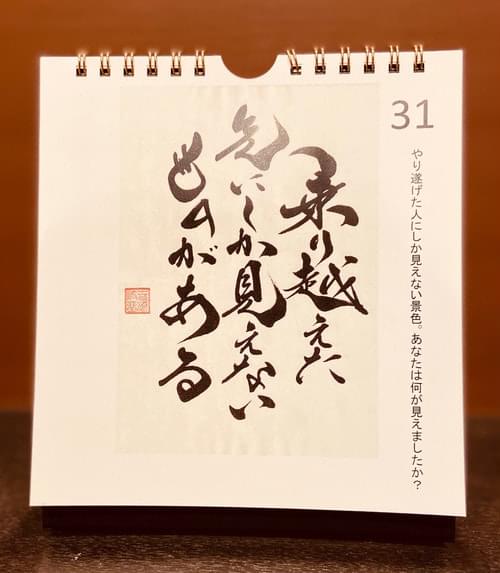 31
やり遂げた人にしか見えない景色。あなたは何が見えましたか？
乗り越えた
先にしか見えない
ものがある